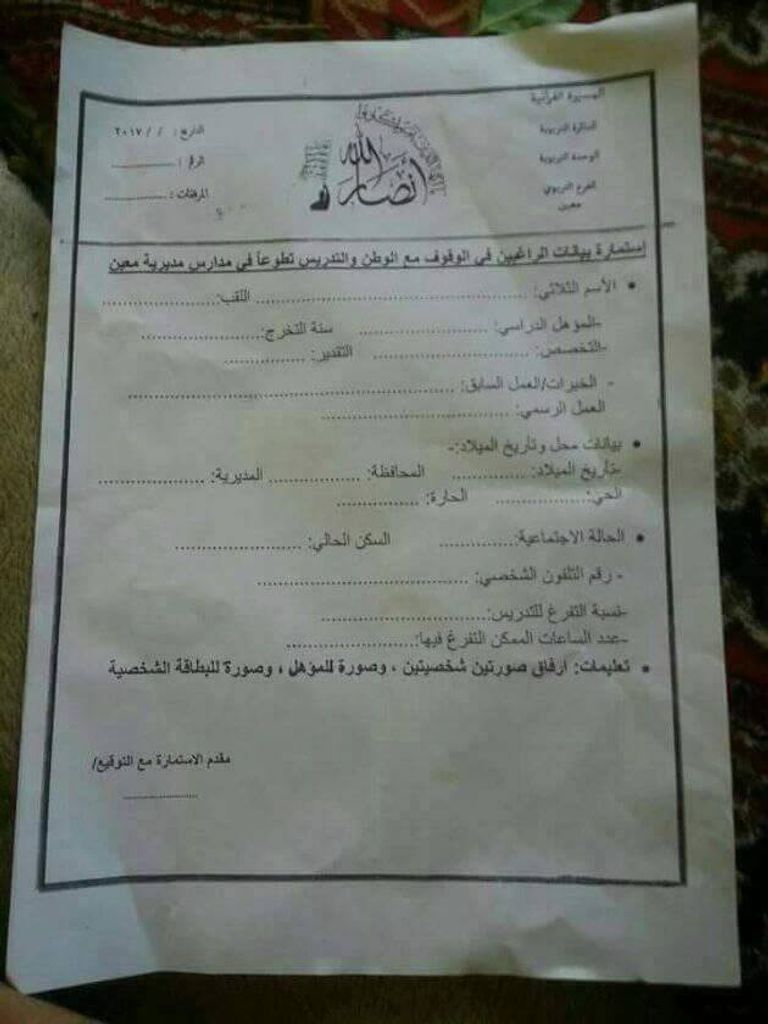 المسيرة القرآنية
الدائرة التربوية
الوحدة التربوية
الفرع التربوي
معين
أنصار الله
التاريخ : / / ٢٠١٧
الرقم : ................
المرفقات : ................
إستمارة بيانات الراغبين في الوقوف مع الوطن والتدريس تطوعاً في مدارس مديرية معين
• الأسم الثلاثي: ................................ اللقب: ................
-المؤهل الدراسي: ................ سنة التخرج: ................
-التخصص: ................ التقدير: ................
- الخبرات/العمل السابق: ................................
العمل الرسمي: ................................
• بيانات محل وتأريخ الميلاد:-
-تأريخ الميلاد: ................ المحافظة: ................ المديرية: ................
الحي: ................ الحارة: ................
• الحالة الاجتماعية: ................ السكن الحالي: ................
- رقم التلفون الشخصي: ................................
-نسبة التفرغ للتدريس: ................................
-عدد الساعات الممكن التفرغ فيها: ................
• تعليمات: أرفاق صورتين شخصيتين ، وصورة للمؤهل ، وصورة للبطاقة الشخصية
مقدم الاستمارة مع التوقيع/
................